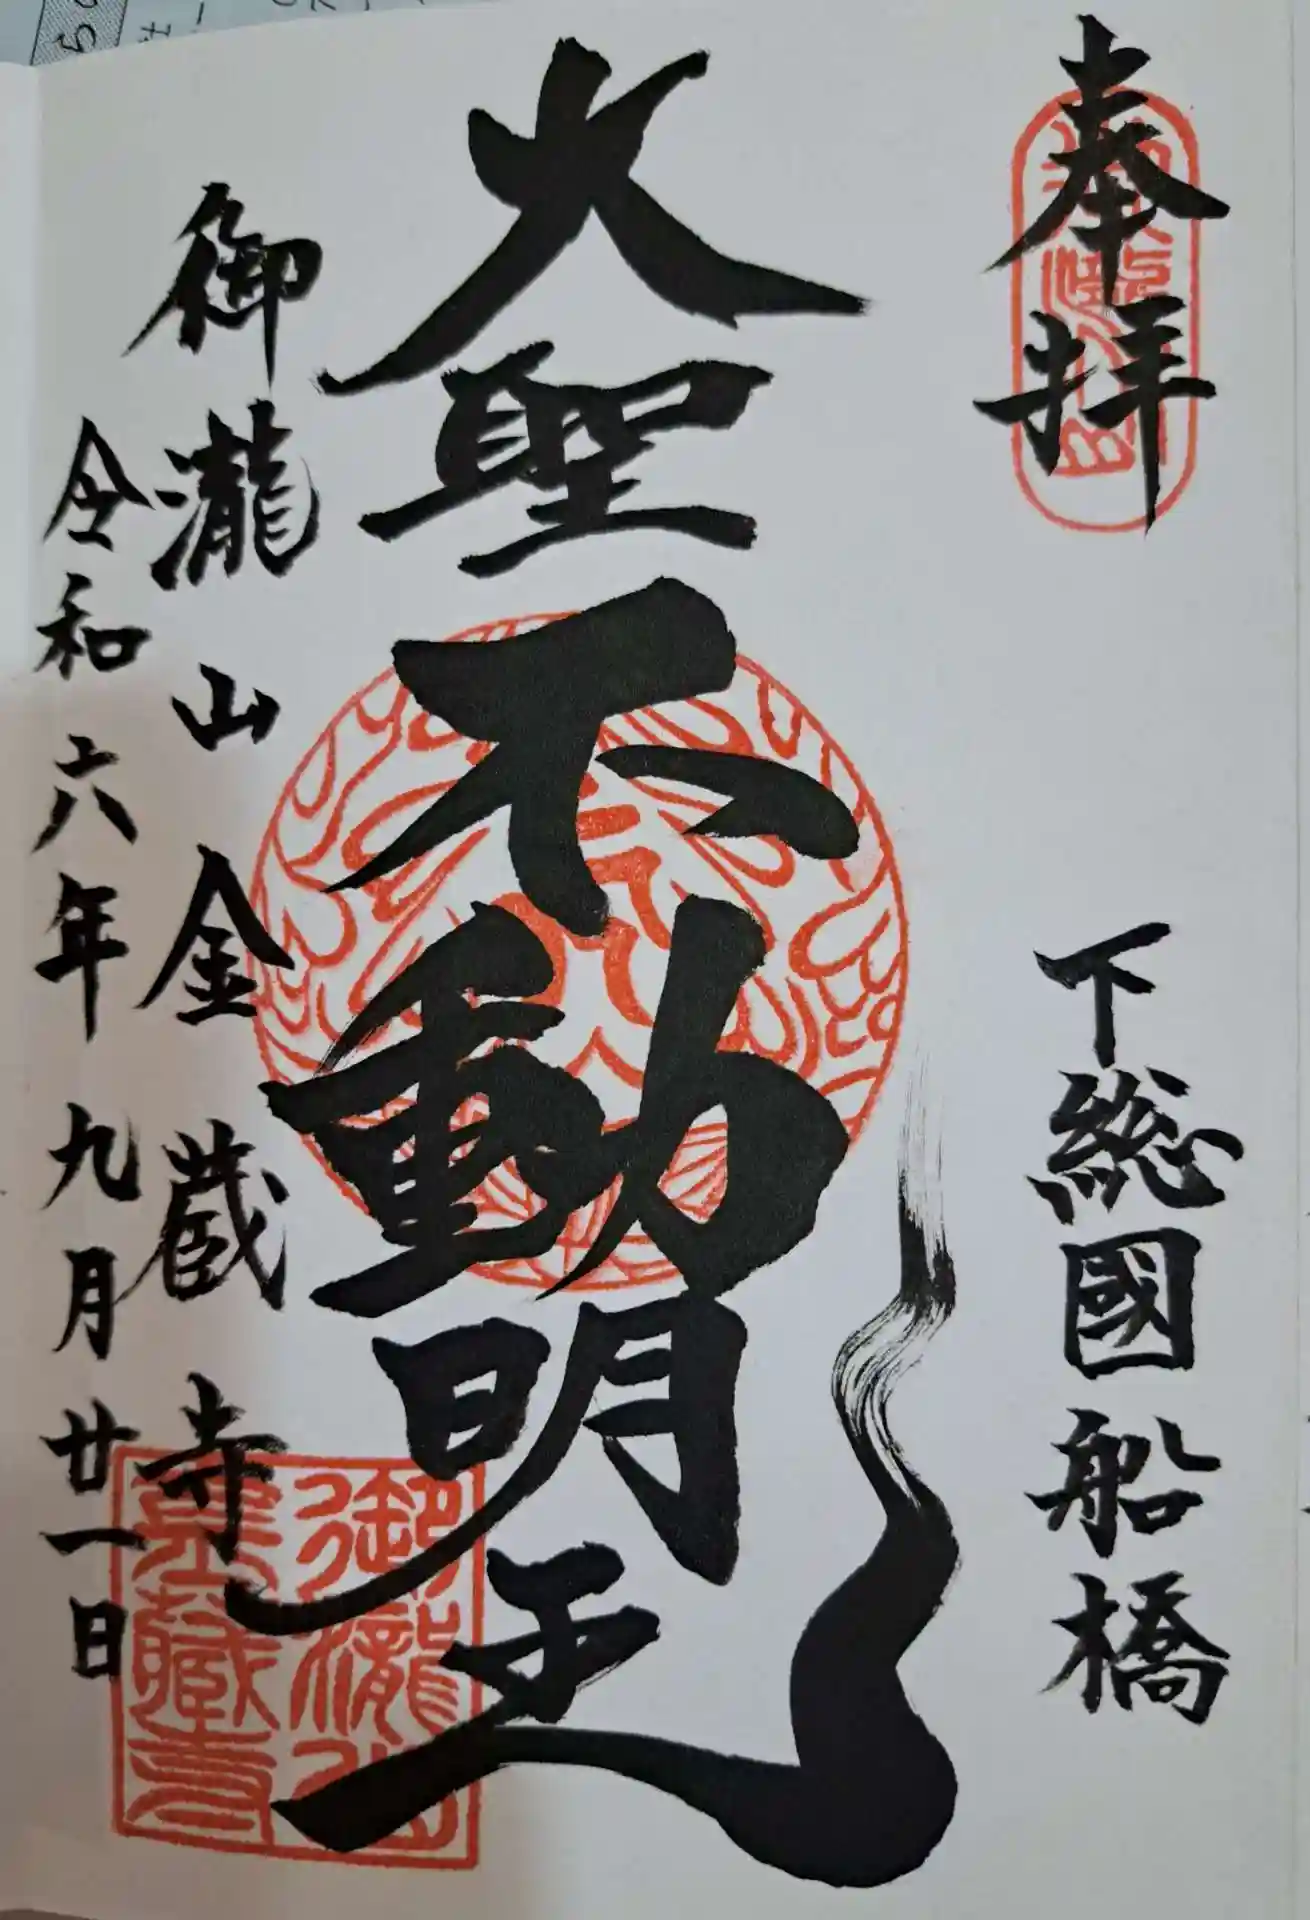 奉拝
下総國船橋
大聖不動明王
御瀧山金蔵寺
令和六年九月廿一日
御瀧山
金蔵寺